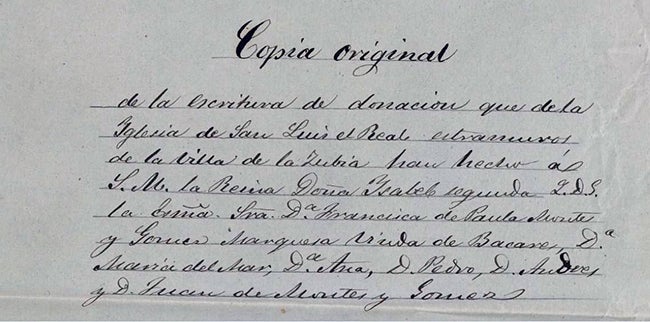 Copia original
de la escritura de donacion que de la
Iglesia de San Luis el Real estramuros
de la Villa de la Zubia han hecho á
S.M. la Reina Doña Ysabel segunda Q.D.G.
la Exmã. Sra. D.ª Francisca de Paula Montes
y Gomez Marquesa Viuda de Bacares, D.ª
Maria del Mar, D.ª Ana, D. Pedro, D. Andres
y D. Juan de Montes y Gomez